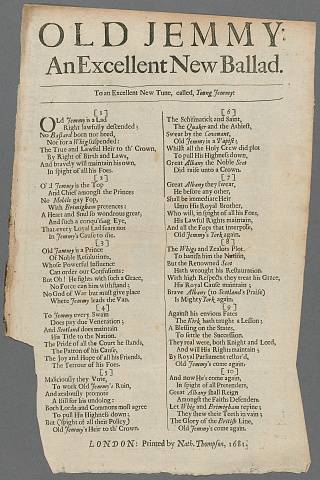 OLD JEMMY:
An Excellent New Ballad.
To an Excellent New Tune, called, Young Jemmy.
[1]
OLd Jemmy is a Lad
Right lawfully descended;
No Bastard born nor bred,
Nor for a Whig suspended:
The True and Lawful Heir to th' Crown,
By Right of Birth and Laws,
And bravely will maintain his own,
In spight of all his Foes.
[2]
Old Jemmy is the Top
And Chief amongst the Princes
No Mobile gay Fop,
With Brimigham pretences:
A Heart and Soul so wondrous great,
And such a conqu'ring Eye,
That every Loyal Lad fears not
In Jemmy's Cause to die.
[3]
Old Jemmy is a Prince
Of Noble Resolutions,
Whose Powerful Influence
Can order our Confusions:
But Oh! He fights with such a Grace,
No Force can him withstand;
No God of War but must give place
Where Jemmy leads the Van.
[4]
To Jemmy every Swain
Does pay due Veneration;
And Scotland does maintain
His Title to the Nation.
The Pride of all the Court he stands,
The Patron of his Cause,
The Joy and Hope of all his Friends,
The Terrour of his Foes.
[5]
Maliciously they Vote,
To work Old Jemmy's Ruin,
And zealously promote
A Bill for his undoing:
Both Lords and Commons most agree
To pull His Highness down;
But (spight of all their Policy)
Old Jemmy's Heir to th' Crown.
[6]
The Schismatick and Saint,
The Quaker and the Atheist,
Swear by the Covenant,
Old Jemmy is a Papist:
Whilst all the Holy Crew did plot
To pull His Highness down,
Great Albany the Noble Scot
Did raise unto a Crown.
[7]
Great Albany they swear,
He before any other,
Shall be immediate Heir
Unto His Royal Brother,
Who will, in spight of all his Foes,
His Lawful Rights maintain,
And all the Fops that interpose,
Old Jemmy's York again.
[8]
The Whigs and Zealots Plot
To banish him the Nation,
But the Renowned Scot
Hath wrought his Restauration.
With high Respects they treat his Grace,
His Royal Cause maintain;
Brave Albany (to Scotland's Praise)
Is Mighty York again.
[9]
Against his envious Fates
The Kirk hath taught a Lesson;
A Blessing on the States,
To settle the Succession.
They real were, both Knight and Lord,
And will His Rights maintain;
By Royal Parliament restor'd,
Old Jemmy's come again.
[10]
And now He's come again,
In spight of all Pretenders,
Great Albany shall Reign
Amongst the Faiths Defenders.
Let Whig and Brimigham repine;
They shew their Teeth in vain;
The Glory of the British Line,
Old Jemmy's come again.
LONDON: Printed by Nath. Thompson, 1681.